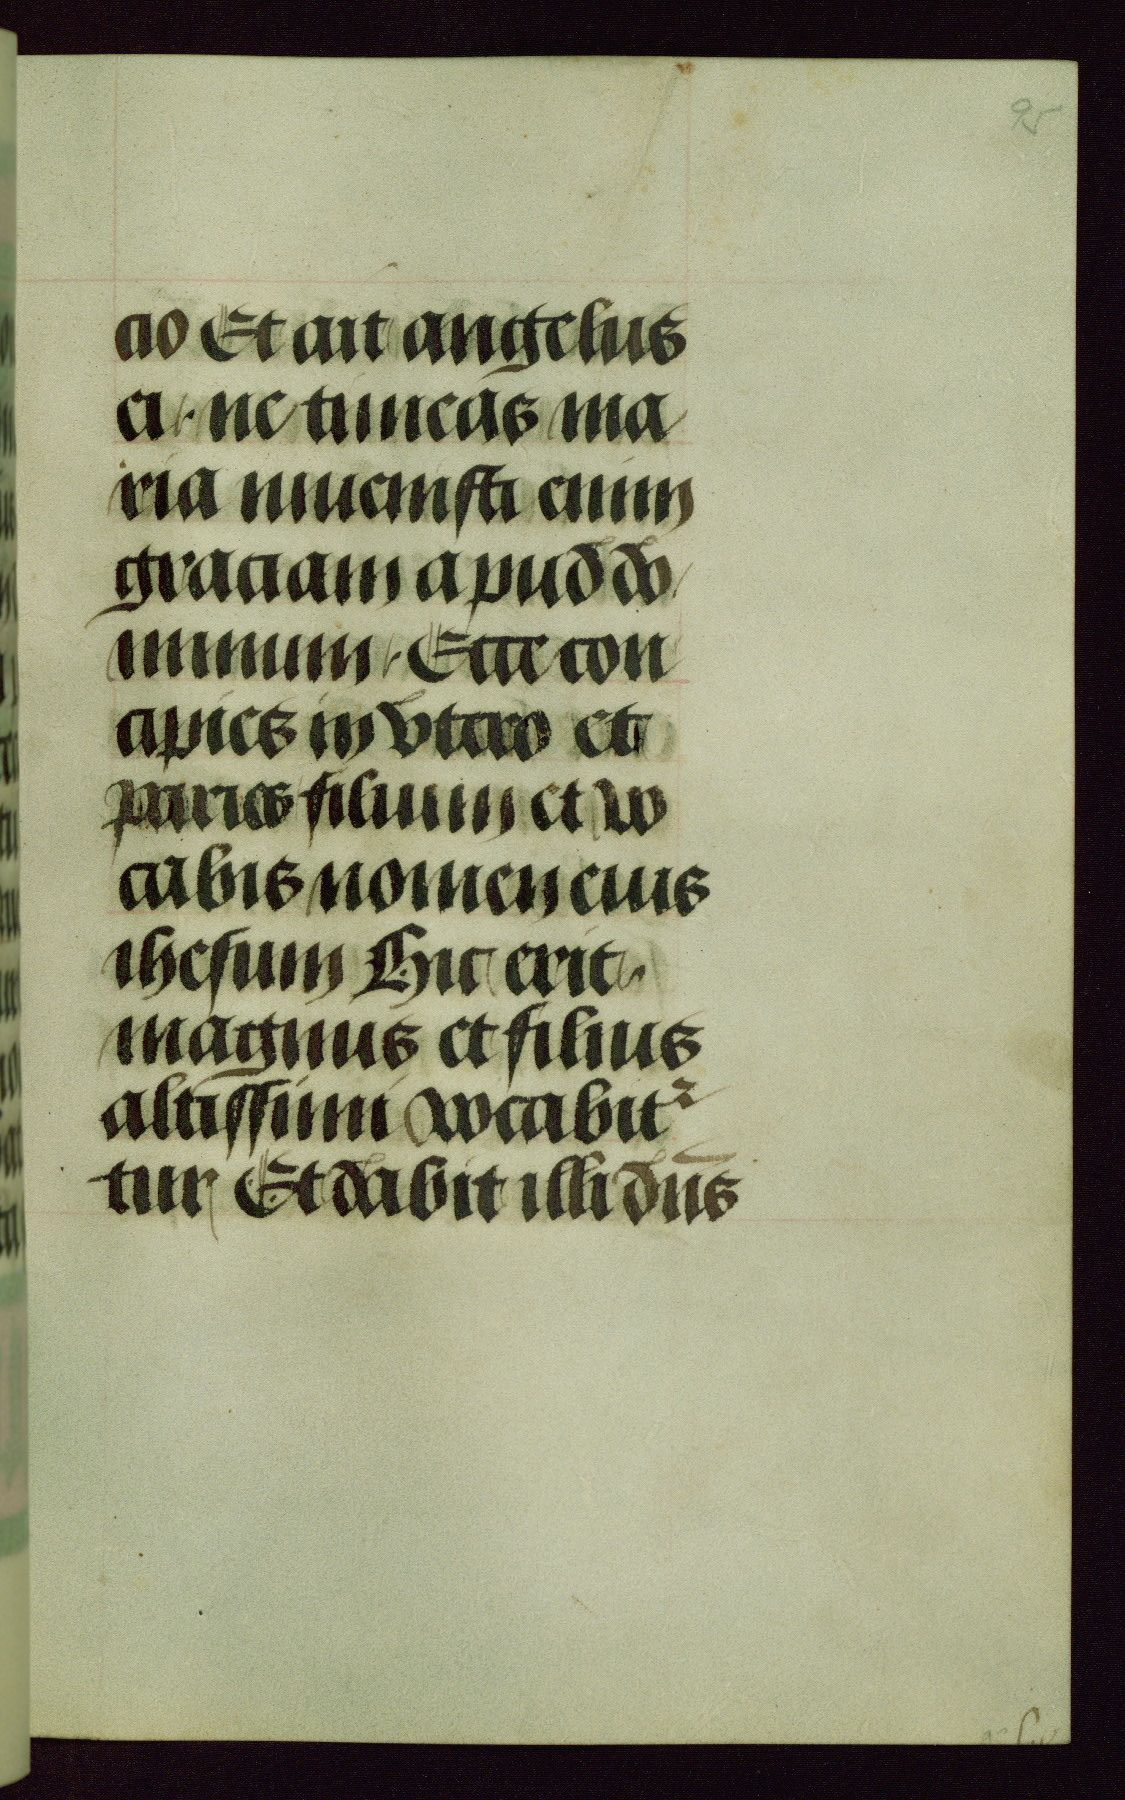 25
cio Et ait angelus
ei · ne timeas ma
ria inuenisti enim
graciam apud do
minum · Ecce con
cipies in vtero et
paries filium et vo
cabis nomen eius
ihesum Hic erit
magnus et filius
altissimi vocabit
tur Et dabit illi dn̄s